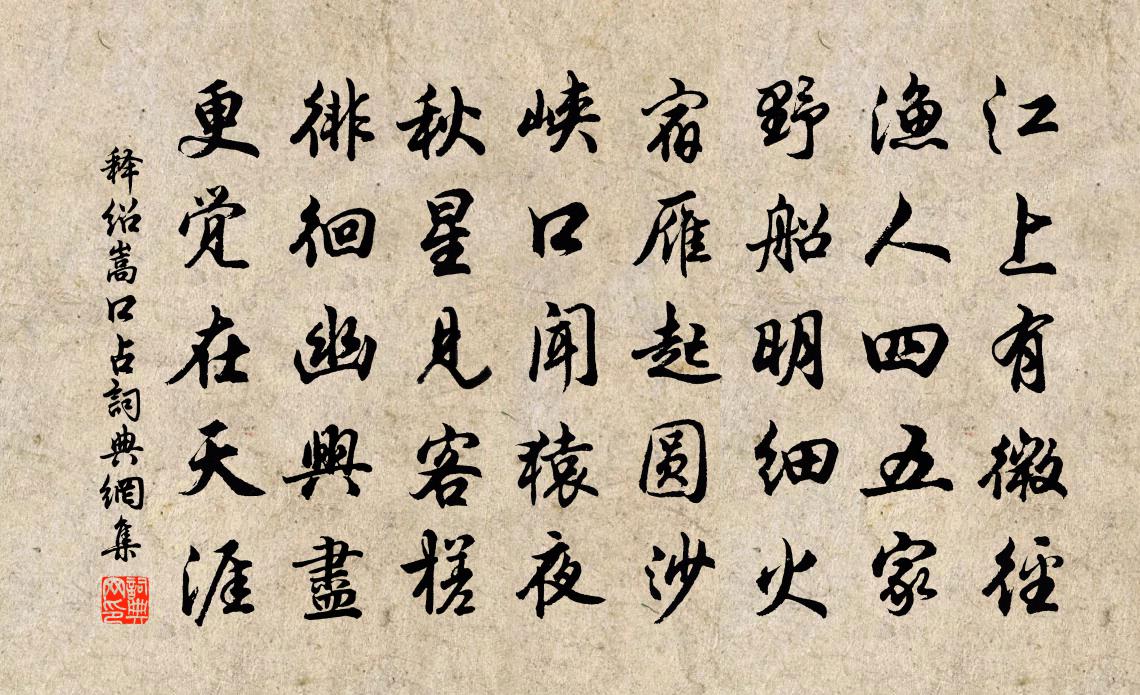 江上有微径
渔人四五家
野船明细火
宿雁起圆沙
峡口闻猿夜
秋星见客槎
徘徊幽興盡
更觉在天涯
释绍嵩口占詞典網集
詞典网印